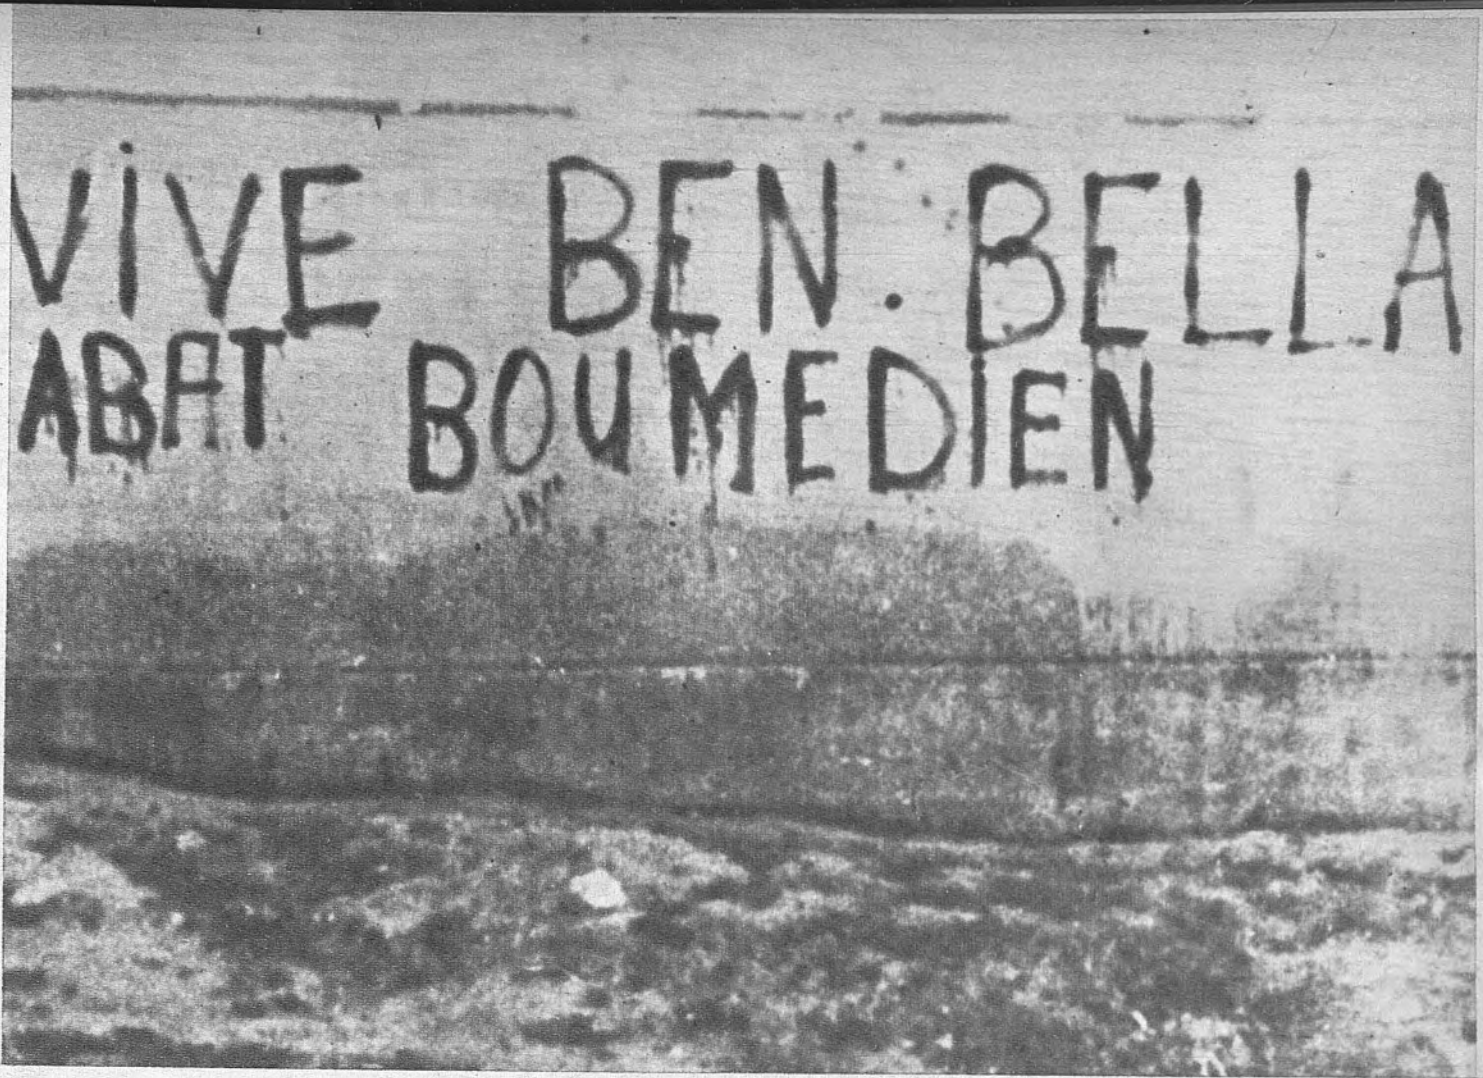 ViVE BEN.BELLA
ABAT BOUMEDiEN